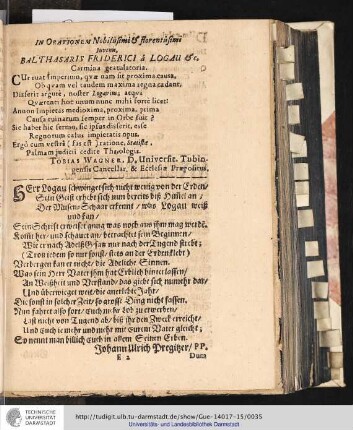 IN ORATIONEM Nobilissimi & florentissimi
Juvenis,
BALTHASARIS FRIDERICI à LOGAU &c.
Carmina gratulatoria.
CUr ruat Imperium, quæ nam sit proxima causa,
Ob quam vel tandem maxima regna cadant,
Disserit argutè, noster Logavius; atqvi
Quæram hoc unum nunc mihi forte licet:
Annon Impietas mediocima, proxima, prima
Causa ruinarum semper in Orbe fuit?
Sic haber hic sermo, sic ipsus disserit, esse
Regnorum casus impietatis opus.
Ergò cum vestrâ
Palmam judicii cedite Theologia.
TOBIAS WAGNER, D, Universit. Tubin-
gensis Cancellar, & Ecclesiæ Præpositus,
HErr Logau schwinget sich nicht wenig von der Erden/
Sein Geist erhebt sich nun bereits biß Himel an/
Der Musen-Schaar erkennt/ was Logau weiß
und kan/
Sein Schrifft erweiset gnug was noch aus ihm mag werdē.
Kom̃t her/ und schauet an/ betrachtet sein Beginnen/
Wie er nach Adels Gſau nur nach der Tugend strebt;
(Trotz iedem so nur sonst/ stets an der Erden klebt)
Verbergen kan er nicht/ die Adeliche Sinnen.
Was sein Herr Vater ihm hat Erblich hinterlassen/
An Weißheit und Verstand/ das giebt sich numehr dar/
Und überwieget weit/ die anerlebte Jahr/
Die sonst in solcher Zeit/ so grosse Ding nicht fassen,
Nun fahret also fort/ Euch mehr Lob zu erwerben/
Laßt nicht von Tugend ab/ biß ihr den Zweck erreicht/
Und Euch ie mehr und mehr mit eurem Vater gleicht;
So nennt man billich auch in allem Seinen Erben.
Johann Ulrich Pregitzer/ PP.
E 2
Dum
TECHNISCHE
UNIVERSITÄT
DARMSTADT
http://tudigit.ulb.tu-darmstadt.de/show/Gue-14017-15/0035
Universitäts- und Landesbibliothek Darmstadt